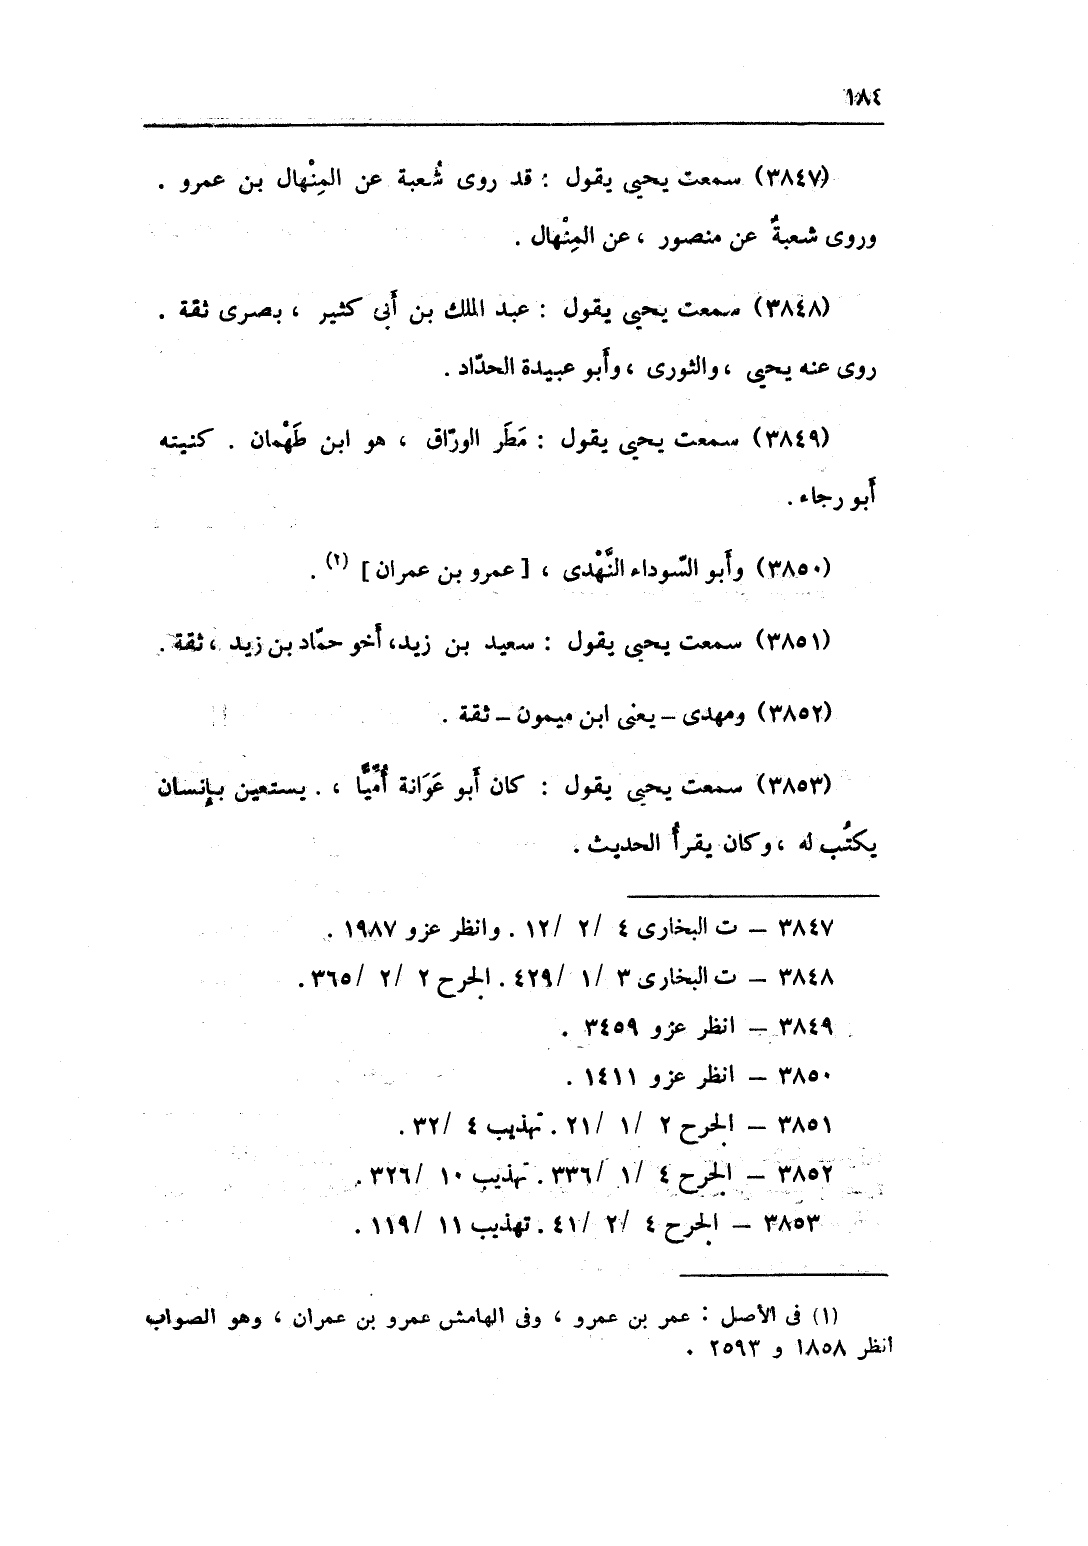 ١٨٤
(٣٨٤٧) سمعت يحيى يقول : قد روى شُعبة عن المِنْهال بن عمرو .
وروى شعبةُ عن منصور ، عن المِنْهال .
(٣٨٤٨) سمعت يحيى يقول : عبد الملك بن أَبى كثير ، بصرى ثقة .
روى عنه يحيى ، والثورى ، وأَبو عبيدة الحدّاد .
(٣٨٤٩) سمعت يحيى يقول : مَطَر الورّاق ، هو ابن طَهْمان . كنيته
أَبو رجاء .
(٣٨٥٠) وأَبو السّوداء النَّهْدى ، [ عمرو بن عمران ] (٢) .
(٣٨٥١) سمعت يحيى يقول : سعيد بن زيد، أَخو حمّاد بن زيد ، ثقة .
(٣٨٥٢) ومهدى – يعنى ابن ميمون – ثقة .
(٣٨٥٣) سمعت يحيى يقول : كان أَبو عَوَانة أُمِّيًّا ، . يستعين بإِنسان
يكتُب له ، وكان يقرأُ الحديث .
٣٨٤٧ – ت البخارى ٤ /٢ /١٢ . وانظر عزو ١٩٨٧ .
٣٨٤٨ – ت البخارى ٣ /١ /٤٢٩ . الجرح ٢ /٢ /٣٦٥ .
٣٨٤٩ – انظر عزو ٣٤٥٩ .
٣٨٥٠ – انظر عزو ١٤١١ .
٣٨٥١ – الجرح ٢ /١ /٢١ . تهذيب ٤ /٣٢ .
٣٨٥٢ – الجرح ٤ /١ /٣٣٦ . تهذيب ١٠ /٣٢٦ .
٣٨٥٣ – الجرح ٤ /٢ /٤١ . تهذيب ١١ /١١٩ .
(١) فى الأصل : عمر بن عمرو ، وفى الهامش عمرو بن عمران ، وهو الصواب
انظر ١٨٥٨ و ٢٥٩٣ .